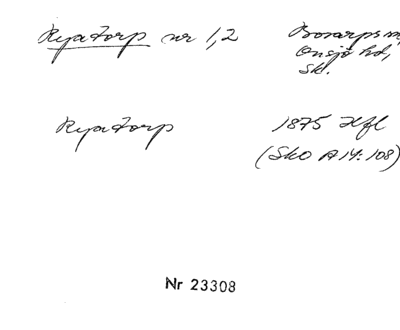 Ryatorp nr 1,2 Bosarps
Onsjö hd,
Sk.
Ryatorp 1875 Hfl
(SkO A14:108)
Nr 23308